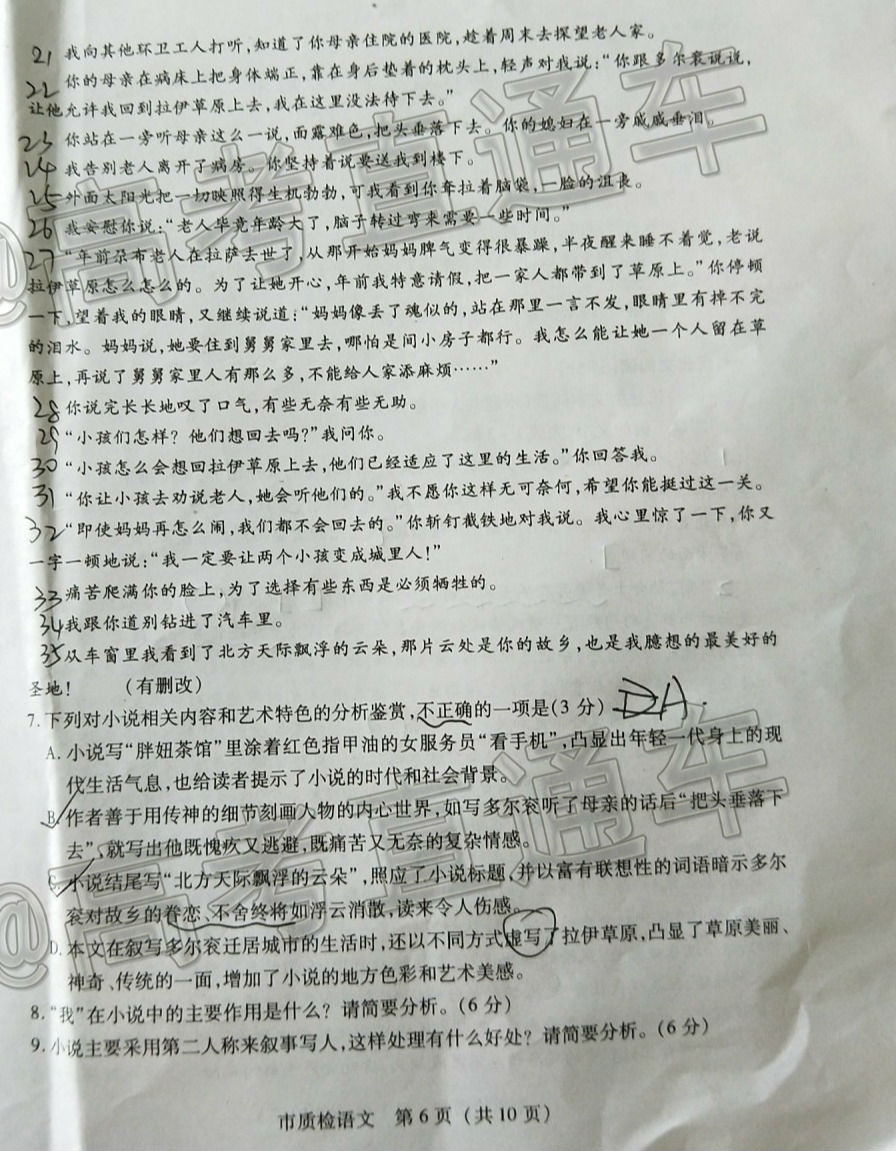 21 我向其他环卫工人打听,知道了你母亲住院的医院,趁着周末去探望老人家。
22 你的母亲在病床上把身体端正,靠在身后垫着的枕头上,轻声对我说:“你跟多尔衮说说,
让他允许我回到拉伊草原上去,我在这里没法待下去。”
23 你站在一旁听母亲这么一说,面露难色,把头垂落下去。你的媳妇在一旁戚戚垂泪。
24 我告别老人离开了病房。你坚持着说要送我到楼下。
25 外面太阳光把一切映照得生机勃勃,可我看到你耷拉着脑袋,一脸的沮丧。
26 我安慰你说:“老人毕竟年龄大了,脑子转过弯来需要一些时间。”
27 “年前朵布老人在拉萨去世了,从那开始妈妈脾气变得很暴躁,半夜醒来睡不着觉,老说
拉伊草原怎么怎么的。为了让她开心,年前我特意请假,把一家人都带到了草原上。”你停顿
一下,望着我的眼睛,又继续说道:“妈妈像丢了魂似的,站在那里一言不发,眼睛里有掉不完
的泪水。妈妈说,她要住到舅舅家里去,哪怕是间小房子都行。我怎么能让她一个人留在草
原上,再说了舅舅家里人有那么多,不能给人家添麻烦……”
28 你说完长长地叹了口气,有些无奈有些无助。
29 “小孩们怎样?他们想回去吗?”我问你。
30 “小孩怎么会想回拉伊草原上去,他们已经适应了这里的生活。”你回答我。
31 “你让小孩去劝说老人,她会听他们的。”我不愿你这样无可奈何,希望你能挺过这一关。
32 “即使妈妈再怎么闹,我们都不会回去的。”你斩钉截铁地对我说。我心里惊了一下,你又
一字一顿地说:“我一定要让两个小孩变成城里人!”
33 痛苦爬满你的脸上,为了选择有些东西是必须牺牲的。
34 我跟你道别钻进了汽车里。
35 从车窗里我看到了北方天际飘浮的云朵,那片云处是你的故乡,也是我臆想的最美好的
圣地! (有删改)
7. 下列对小说相关内容和艺术特色的分析鉴赏,不正确的一项是(3 分) DA
A. 小说写“胖妞茶馆”里涂着红色指甲油的女服务员“看手机”,凸显出年轻一代身上的现
代生活气息,也给读者提示了小说的时代和社会背景。
B. 作者善于用传神的细节刻画人物的内心世界,如写多尔衮听了母亲的话后“把头垂落下
去”,就写出他既愧疚又逃避,既痛苦又无奈的复杂情感。
C. 小说结尾写“北方天际飘浮的云朵”,照应了小说标题,并以富有联想性的词语暗示多尔
衮对故乡的眷恋、不舍终将如浮云消散,读来令人伤感。
D. 本文在叙写多尔衮迁居城市的生活时,还以不同方式虚写了拉伊草原,凸显了草原美丽、
神奇、传统的一面,增加了小说的地方色彩和艺术美感。
8. “我”在小说中的主要作用是什么?请简要分析。(6 分)
9. 小说主要采用第二人称来叙事写人,这样处理有什么好处?请简要分析。(6 分)
市质检语文 第 6 页(共 10 页)
@高考直通车
@高考直通车